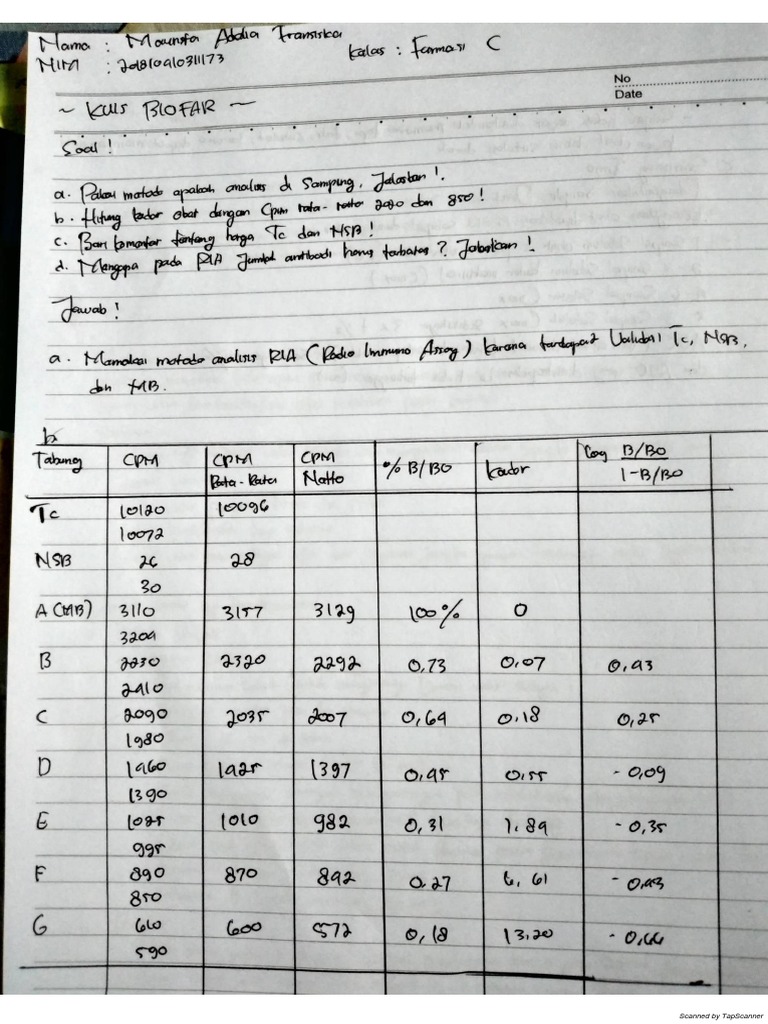 Nama : Mounsfa Adelia Fransiska
Kelas : Farmasi C
NIM : 201810410311173
No
Date
~ KUIS BIOFAR ~
Soal !
a. Pakai metode apakah analisis di Samping, Jelaskan !
b. Hitung kadar obat dengan Cpm rata-rata 2080 dan 850 !
c. Beri komentar tentang harga Tc dan NSB !
d. Mengapa pada RIA Jumlah antibodi harus terbatas ? Jelaskan !
Jawab !
a. Memakai metode analisis RIA (Radio Immuno Assay) karena terdapat Validasi Tc, NSB,
dan MB.
b.
Tabung CPM CPM Rata-Rata CPM Netto % B/BO kadar Log B/BO / 1-B/BO
Tc 10120 10096
10072
NSB 26 28
30
A (MB) 3110 3157 3129 100% 0
3204
B 2230 2320 2292 0,73 0,07 0,43
2410
C 2090 2035 2007 0,64 0,18 0,25
1980
D 1460 1425 1397 0,45 0,55 -0,09
1390
E 1025 1010 982 0,31 1,89 -0,35
995
F 890 870 842 0.27 6,61 -0,43
850
G 610 600 572 0,18 13,20 -0,66
590
Scanned by TapScanner